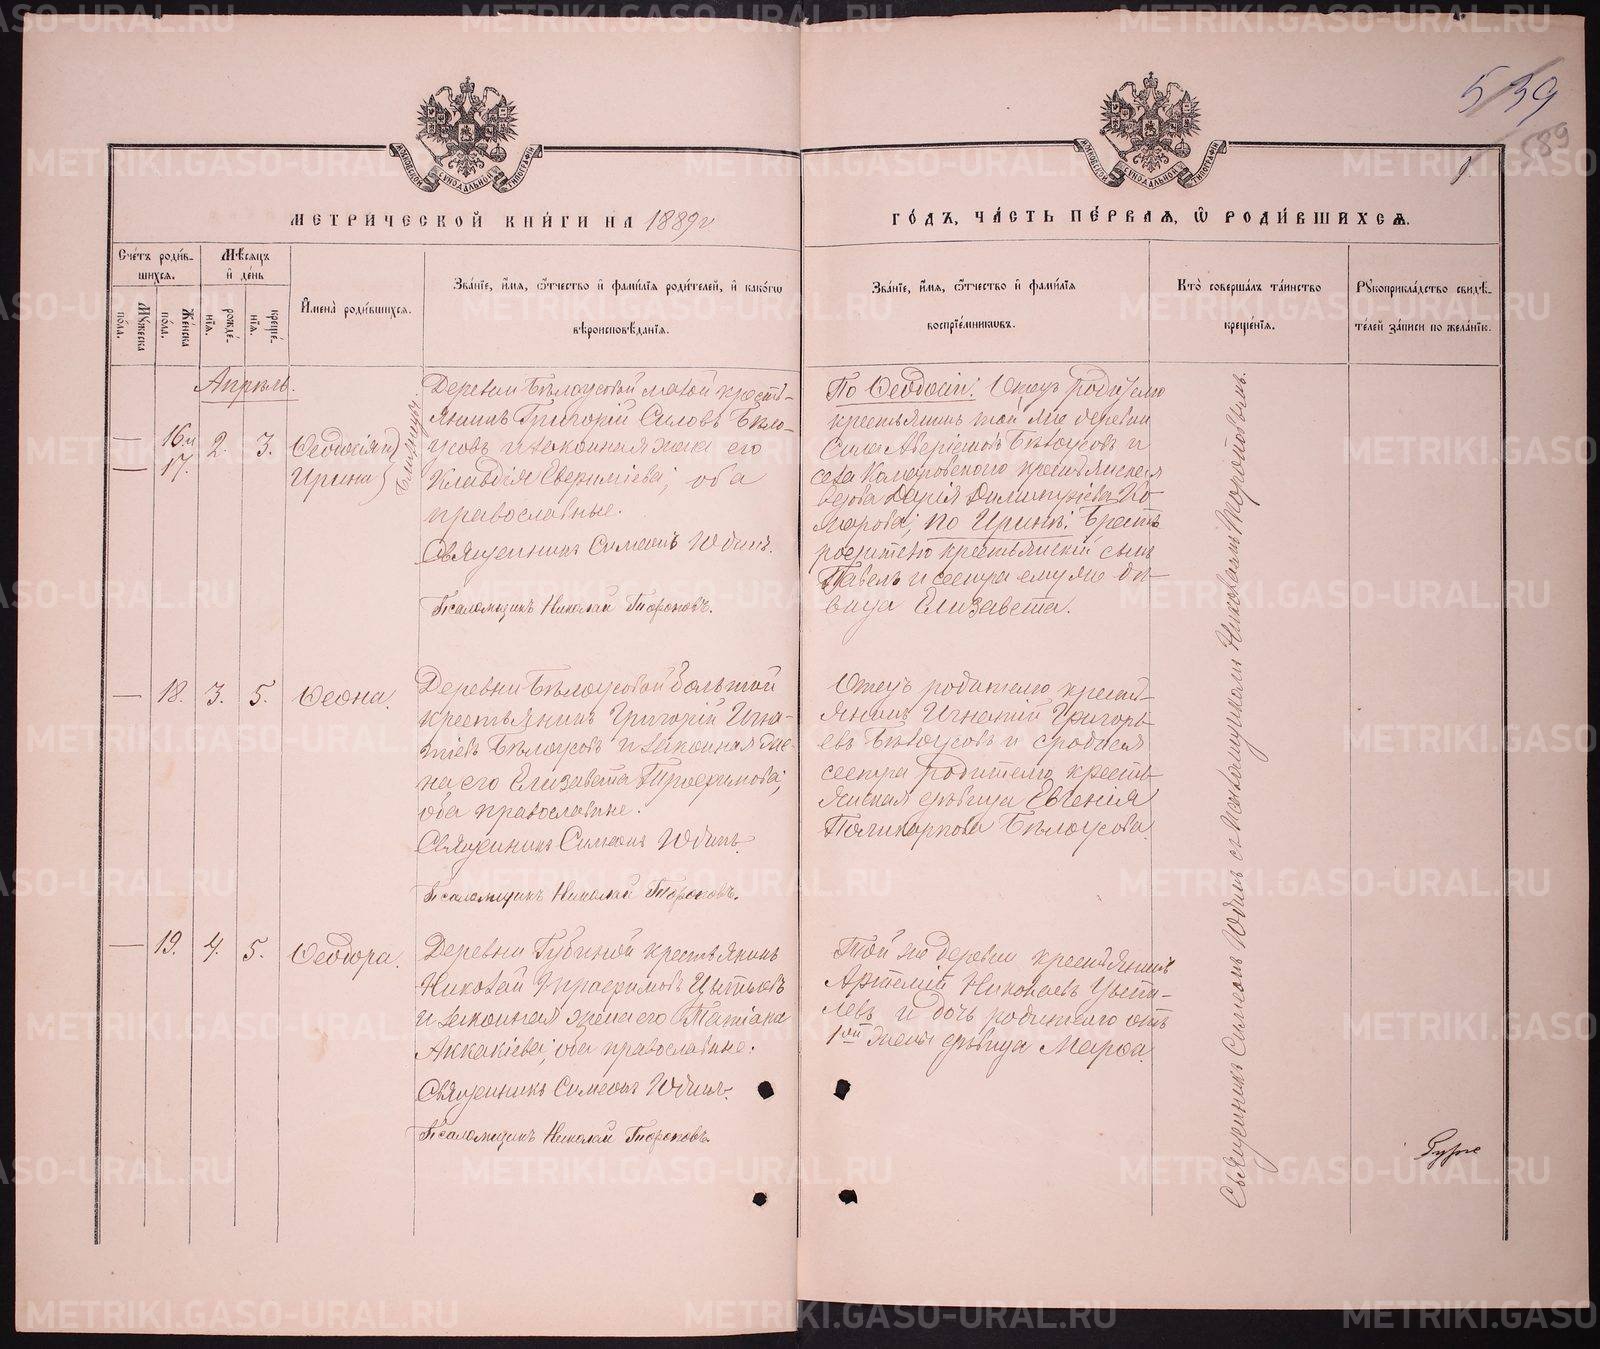 539
689
МОСКОВСКОЙ СѴНОДАЛЬНОЙ ТИПОГРАФІИ
МОСКОВСКОЙ СѴНОДАЛЬНОЙ ТИПОГРАФІИ
МЕТРИ́ЧЕСКОЙ КНИ́ГИ НА 1889 г
ГО́ДЪ, ЧА́СТЬ ПЕ́РВАЯ, Ѡ РОДИ́ВШИХСЯ.
Сче́тъ роди́в-
шихся.
Мѣ́сяцъ
и де́нь
Мꙋ́жеска
по́ла.
Же́нска
по́ла.
рожде́-
нїя.
креще́-
нїя.
Имена̀ роди́вшихся.
Зва́нїе, и́мя, ѻ́тчество и фами́лїя роди́телей, и како́гѡ
вѣроисповѣ́данїя.
Зва́нїе, и́мя, ѻ́тчество и фами́лїя
воспрїе́мникѡвъ.
Кто̀ соверша́лъ та́инство
креще́нїя.
Рꙋкоприкла́дство свидѣ́-
телей за́писи по жела́нїю.
Апрѣль.
— 16 и
— 17.
2. 3.
Ѳеодосія и
Ирина
близнецы.
Деревни Бѣлоусовой малой кресть-
янинъ Григорій Силовъ Бѣло-
усовъ и законная жена его
Клавдія Евфиміева; оба
православные.
Священникъ Симеонъ Юдинъ.
Псаломщикъ Николай Тороповъ.
По Ѳеодосіи: Отецъ родителю
крестьянинъ той же деревни
Сила Бѣлоусовъ и
села Комаровского крестьянская
вдова Дарія Димитріева Ко-
марова; по Иринѣ: братъ
родителю крестьянскій сынъ
Павелъ и сестра ему же дѣ-
вица Елизавета.
Священникъ Симеонъ Юдинъ съ псаломщикомъ Николаемъ Тороповымъ.
— 18. 3. 5. Ѳеона.
Деревни Бѣлоусовой большой
крестьянинъ Григорій Игна-
тіевъ Бѣлоусовъ и законная же-
на его Елизавета Трофимова;
оба православные.
Священникъ Симеонъ Юдинъ.
Псаломщикъ Николай Тороповъ.
Отецъ родителю кресть-
янинъ Игнатій Григорь-
евъ Бѣлоусовъ и сродная
сестра родителю кресть-
янская дѣвица Евгенія
Поликарпова Бѣлоусова
— 19. 4. 5. Ѳеодора.
Деревни Губиной крестьянинъ
Николай Трофимовъ
и законная жена его Татіана
Аккакіева; оба православные.
Священникъ Симеонъ Юдинъ.
Псаломщикъ Николай Тороповъ.
Той же деревни крестьянинъ
Артемій Николаевъ
и дочь родителю отъ
1ой жены дѣвица Марѳа.
METRIKI.GASO-URAL.RU